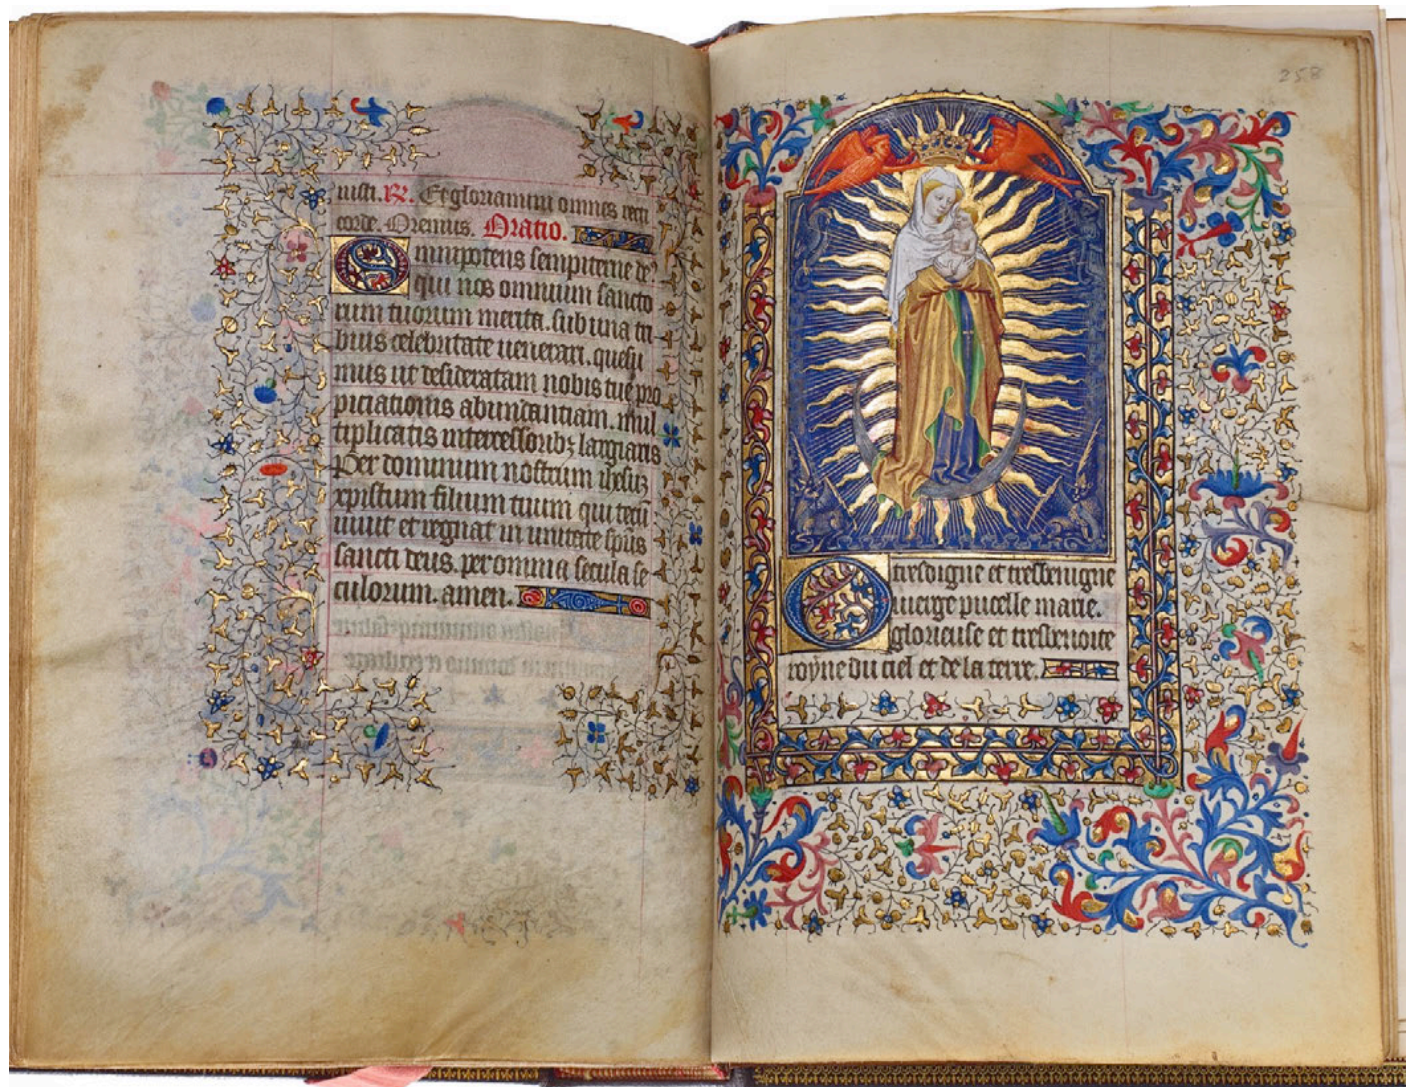 iusti. R. Et gloriamini omnes recti
corde. Oremus. Oratio.
Omnipotens sempiterne de9
qui nos omnium sancto
rum tuorum merita. sub una tri
buis celebritate uenerari. quesu
mus ut desideratam nobis tue pro
piciationis abundantiam. mul
tiplicatis intercessoribꝫ largiaris
Per dominum nostrum ihesuꝫ
xpistum filium tuum qui tecū
uiuit et regnat in unitate spūs
sancti deus. per omnia secula se
culorum. amen.
258
O tresdigne et tresbenigne
uierge pucelle marie.
glorieuse et tresbenoite
royne du ciel et de la terre.